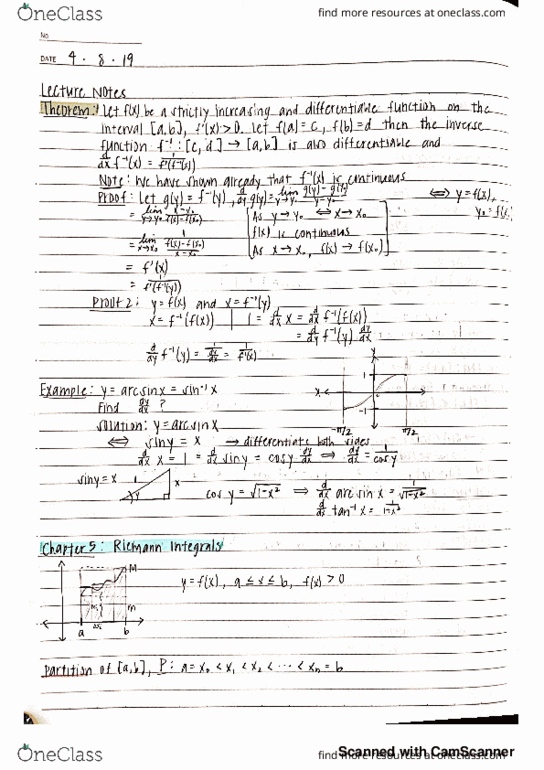 OneClass
find more resources at oneclass.com
No.
DATE 4 · 8 · 19
Lecture Notes
Theorem: Let f(x) be a strictly increasing and differentiable function on the
interval [a,b], f'(x) > 0. Let f(a) = c, f(b) = d then the inverse
function f⁻¹: [c,d] → [a,b] is also differentiable and
d/dx f⁻¹(x) = 1/f'(f⁻¹(x))
Note: We have shown already that f⁻¹(x) is continuous
Proof: Let g(y) = f⁻¹(y), d/dy g(y) = lim y→y₀ g(y)-g(y₀)/y-y₀ ⟺ y = f(x),
y₀ = f(x₀)
= lim y→y₀ x-x₀/f(x)-f(x₀) [As y → y₀ ⟺ x → x₀
= lim x→x₀ 1/(f(x)-f(x₀)/x-x₀) f(x) is continuous
As x → x₀, f(x) → f(x₀)]
= f'(x)
= 1/f'(f⁻¹(y))
Proof 2: y = f(x) and x = f⁻¹(y)
x = f⁻¹(f(x)) | 1 = d/dx x = d/dx f⁻¹(f(x))
= d/dy f⁻¹(y) dy/dx
d/dy f⁻¹(y) = 1/(dy/dx) = 1/f'(x)
Example: y = arcsin x = sin⁻¹ x
Find dy/dx ?
Solution: y = arcsin x
x 1 -1 -π/2 π/2
⟺ sin y = x → differentiate both sides
d/dx x = 1 = d/dx sin y = cos y · dy/dx ⟹ dy/dx = 1/cos y
sin y = x 1 y x
cos y = √1-x² ⟹ d/dx arcsin x = 1/√1-x²
d/dx tan⁻¹ x = 1/1-x²
Chapter 5: Riemann Integrals
M m a b
y = f(x), a ≤ x ≤ b, f(x) > 0
Partition of [a,b], P: a = x₀ < x₁ < x₂ < ··· < xₙ = b
OneClass
find more resources at oneclass.com
Scanned with CamScanner